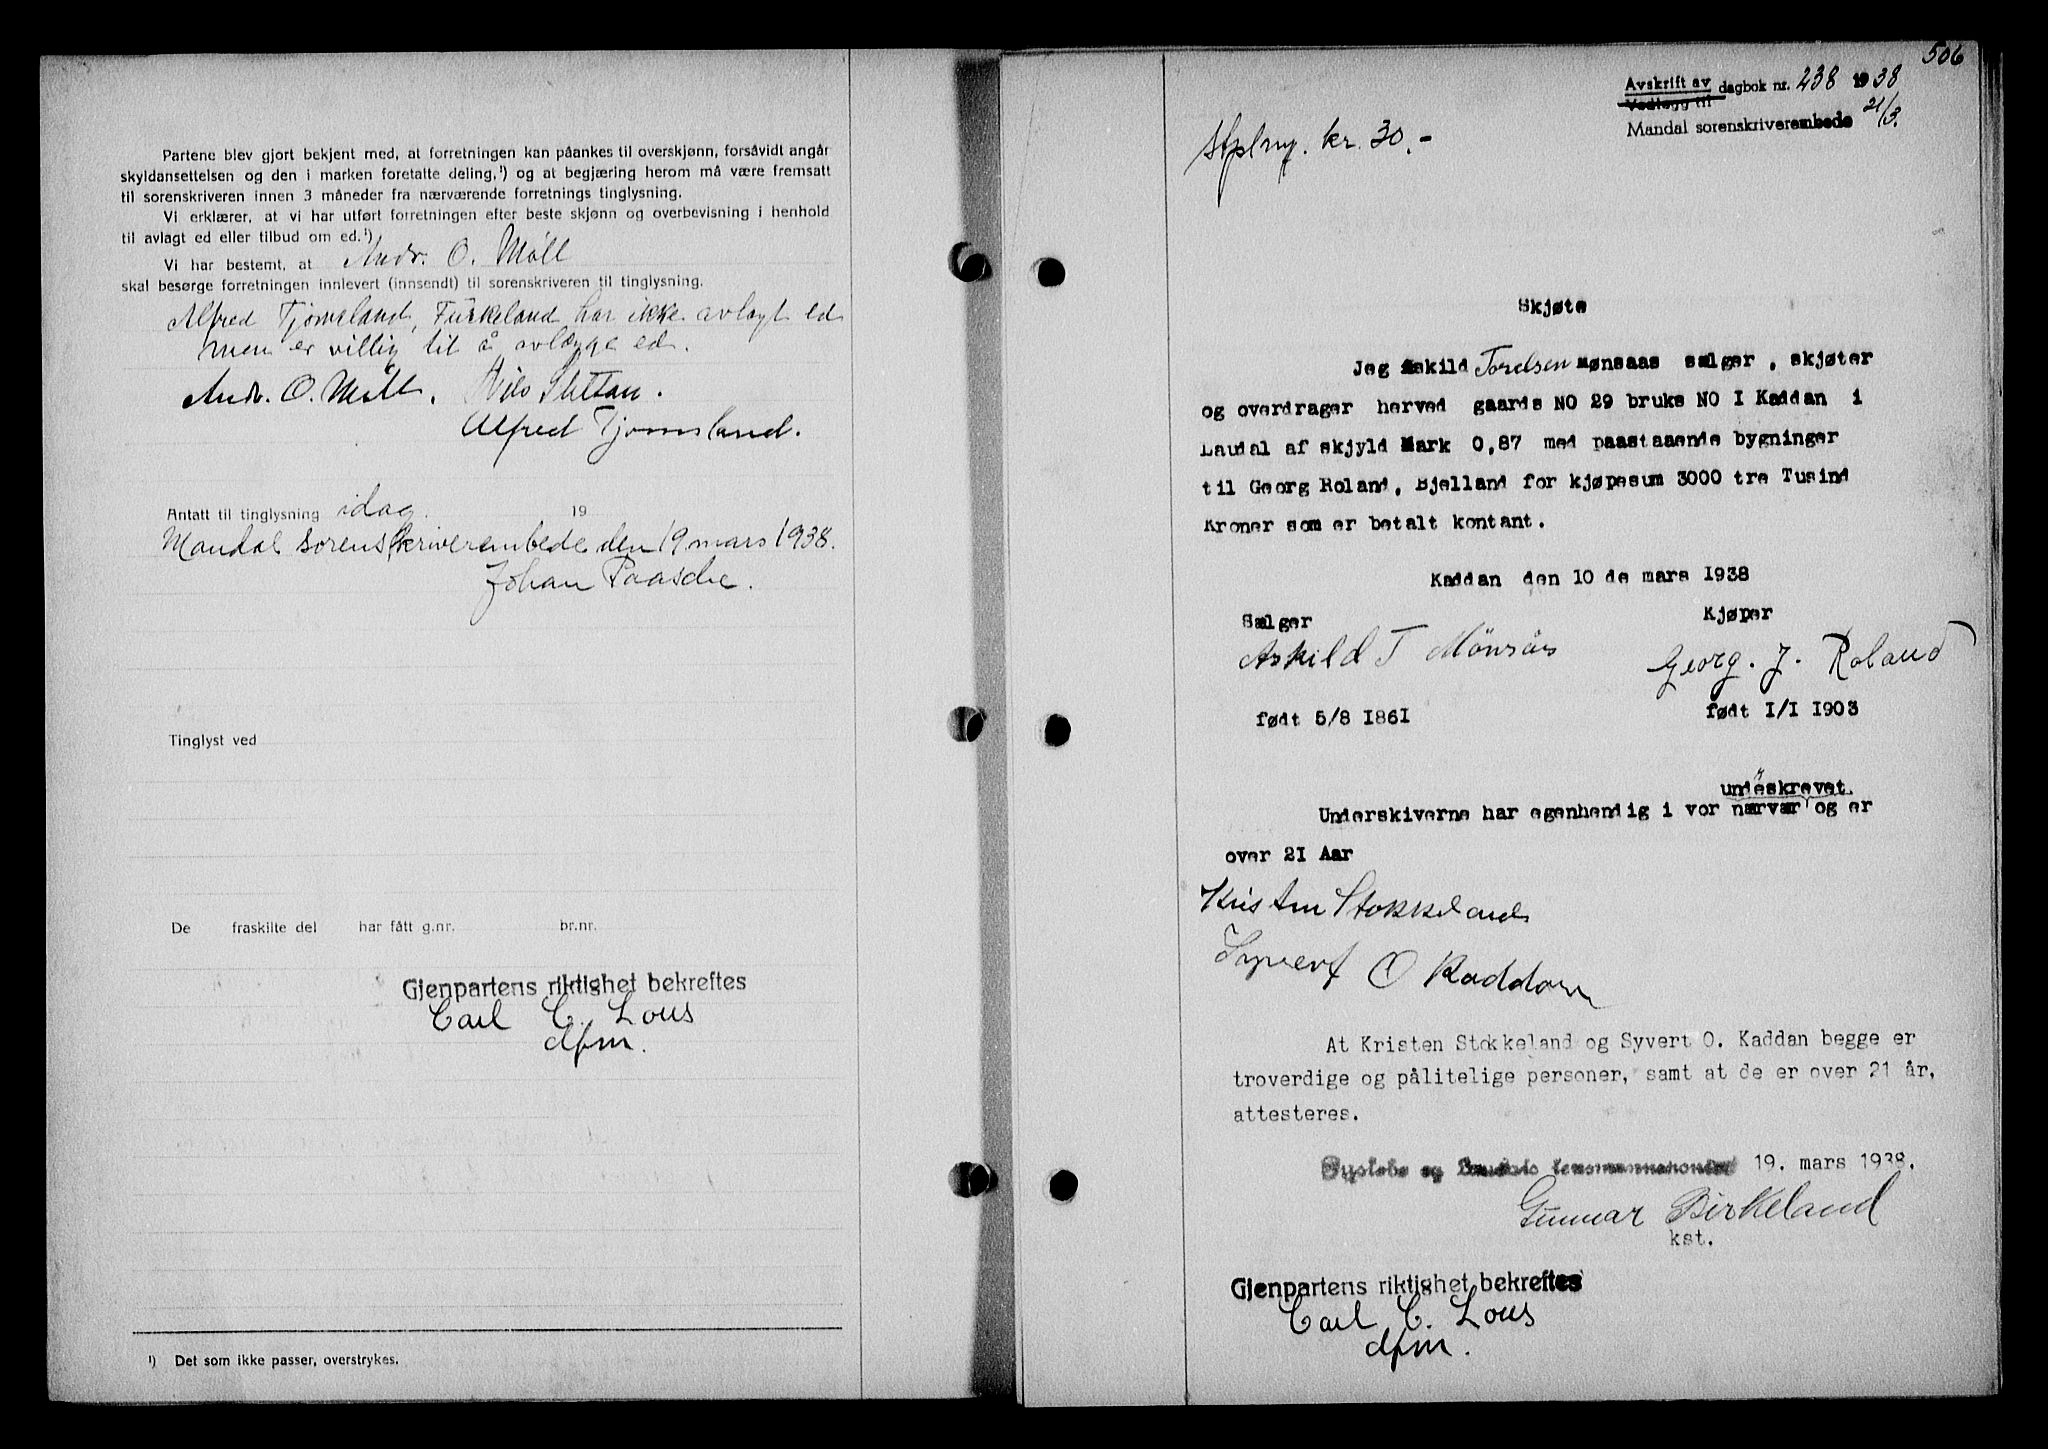 Partene blev gjort bekjent med, at forretningen kan påankes til overskjønn, forsåvidt angår
skyldansettelsen og den i marken foretalte deling,¹) og at begjæring herom må være fremsatt
til sorenskriveren innen 3 måneder fra nærværende forretnings tinglysning.
Vi erklærer, at vi har utført forretningen efter beste skjønn og overbevisning i henhold
til avlagt ed eller tilbud om ed.¹)
Vi har bestemt, at Andr. O. Møll
skal besørge forretningen innlevert (innsendt) til sorenskriveren til tinglysning.
Alfred Tjomsland, Fuskeland har ikke avlagt ed
men er villig til å avlægge ed.
Andr. O. Møll. Nils Sletten.
Alfred Tjomsland.
Antatt til tinglysning idag. 19
Mandal sorenskriverembede den 19 mars 1938.
Johan Paasche.
Tinglyst ved
De fraskilte del har fått g.nr. br.nr.
Gjenpartens riktighet bekreftes
Carl C. Lous
dfm.
¹) Det som ikke passer, overstrykes.
506
Avskrift av dagbok nr. 238 1938
Vedlegg til
Mandal sorenskriverembede 21/3.
Stplmg. kr. 30.-
Skjøte
Jeg Askild Torelsen Mønsaas sælger, skjøter
og overdrager herved gaards NO 29 bruks NO I Kaddan i
Laudal af skjyld Mark 0,87 med paastaaende bygninger
til Georg Roland, Bjelland for kjøpesum 3000 tre Tusind
Kroner som er betalt kontant.
Kaddan den 10 de mars I938
Sælger Kjøper
Askild T Mönsås Georg. J. Roland
født 5/8 I86I født I/I I903
undeskrevet
Underskiverne har egenhendig i vor nærvær og er
over 2I Aar
Kristen Stokkeland
Syvert O Kaddan
At Kristen Stokkeland og Syvert O. Kaddan begge er
troverdige og pålitelige personer, samt at de er over 21 år,
attesteres.
Øyslebø og Laudals lensmannskontor 19. mars 1938.
Gunnar Birkeland
kst.
Gjenpartens riktighet bekreftes
Carl C. Lous
dfm.